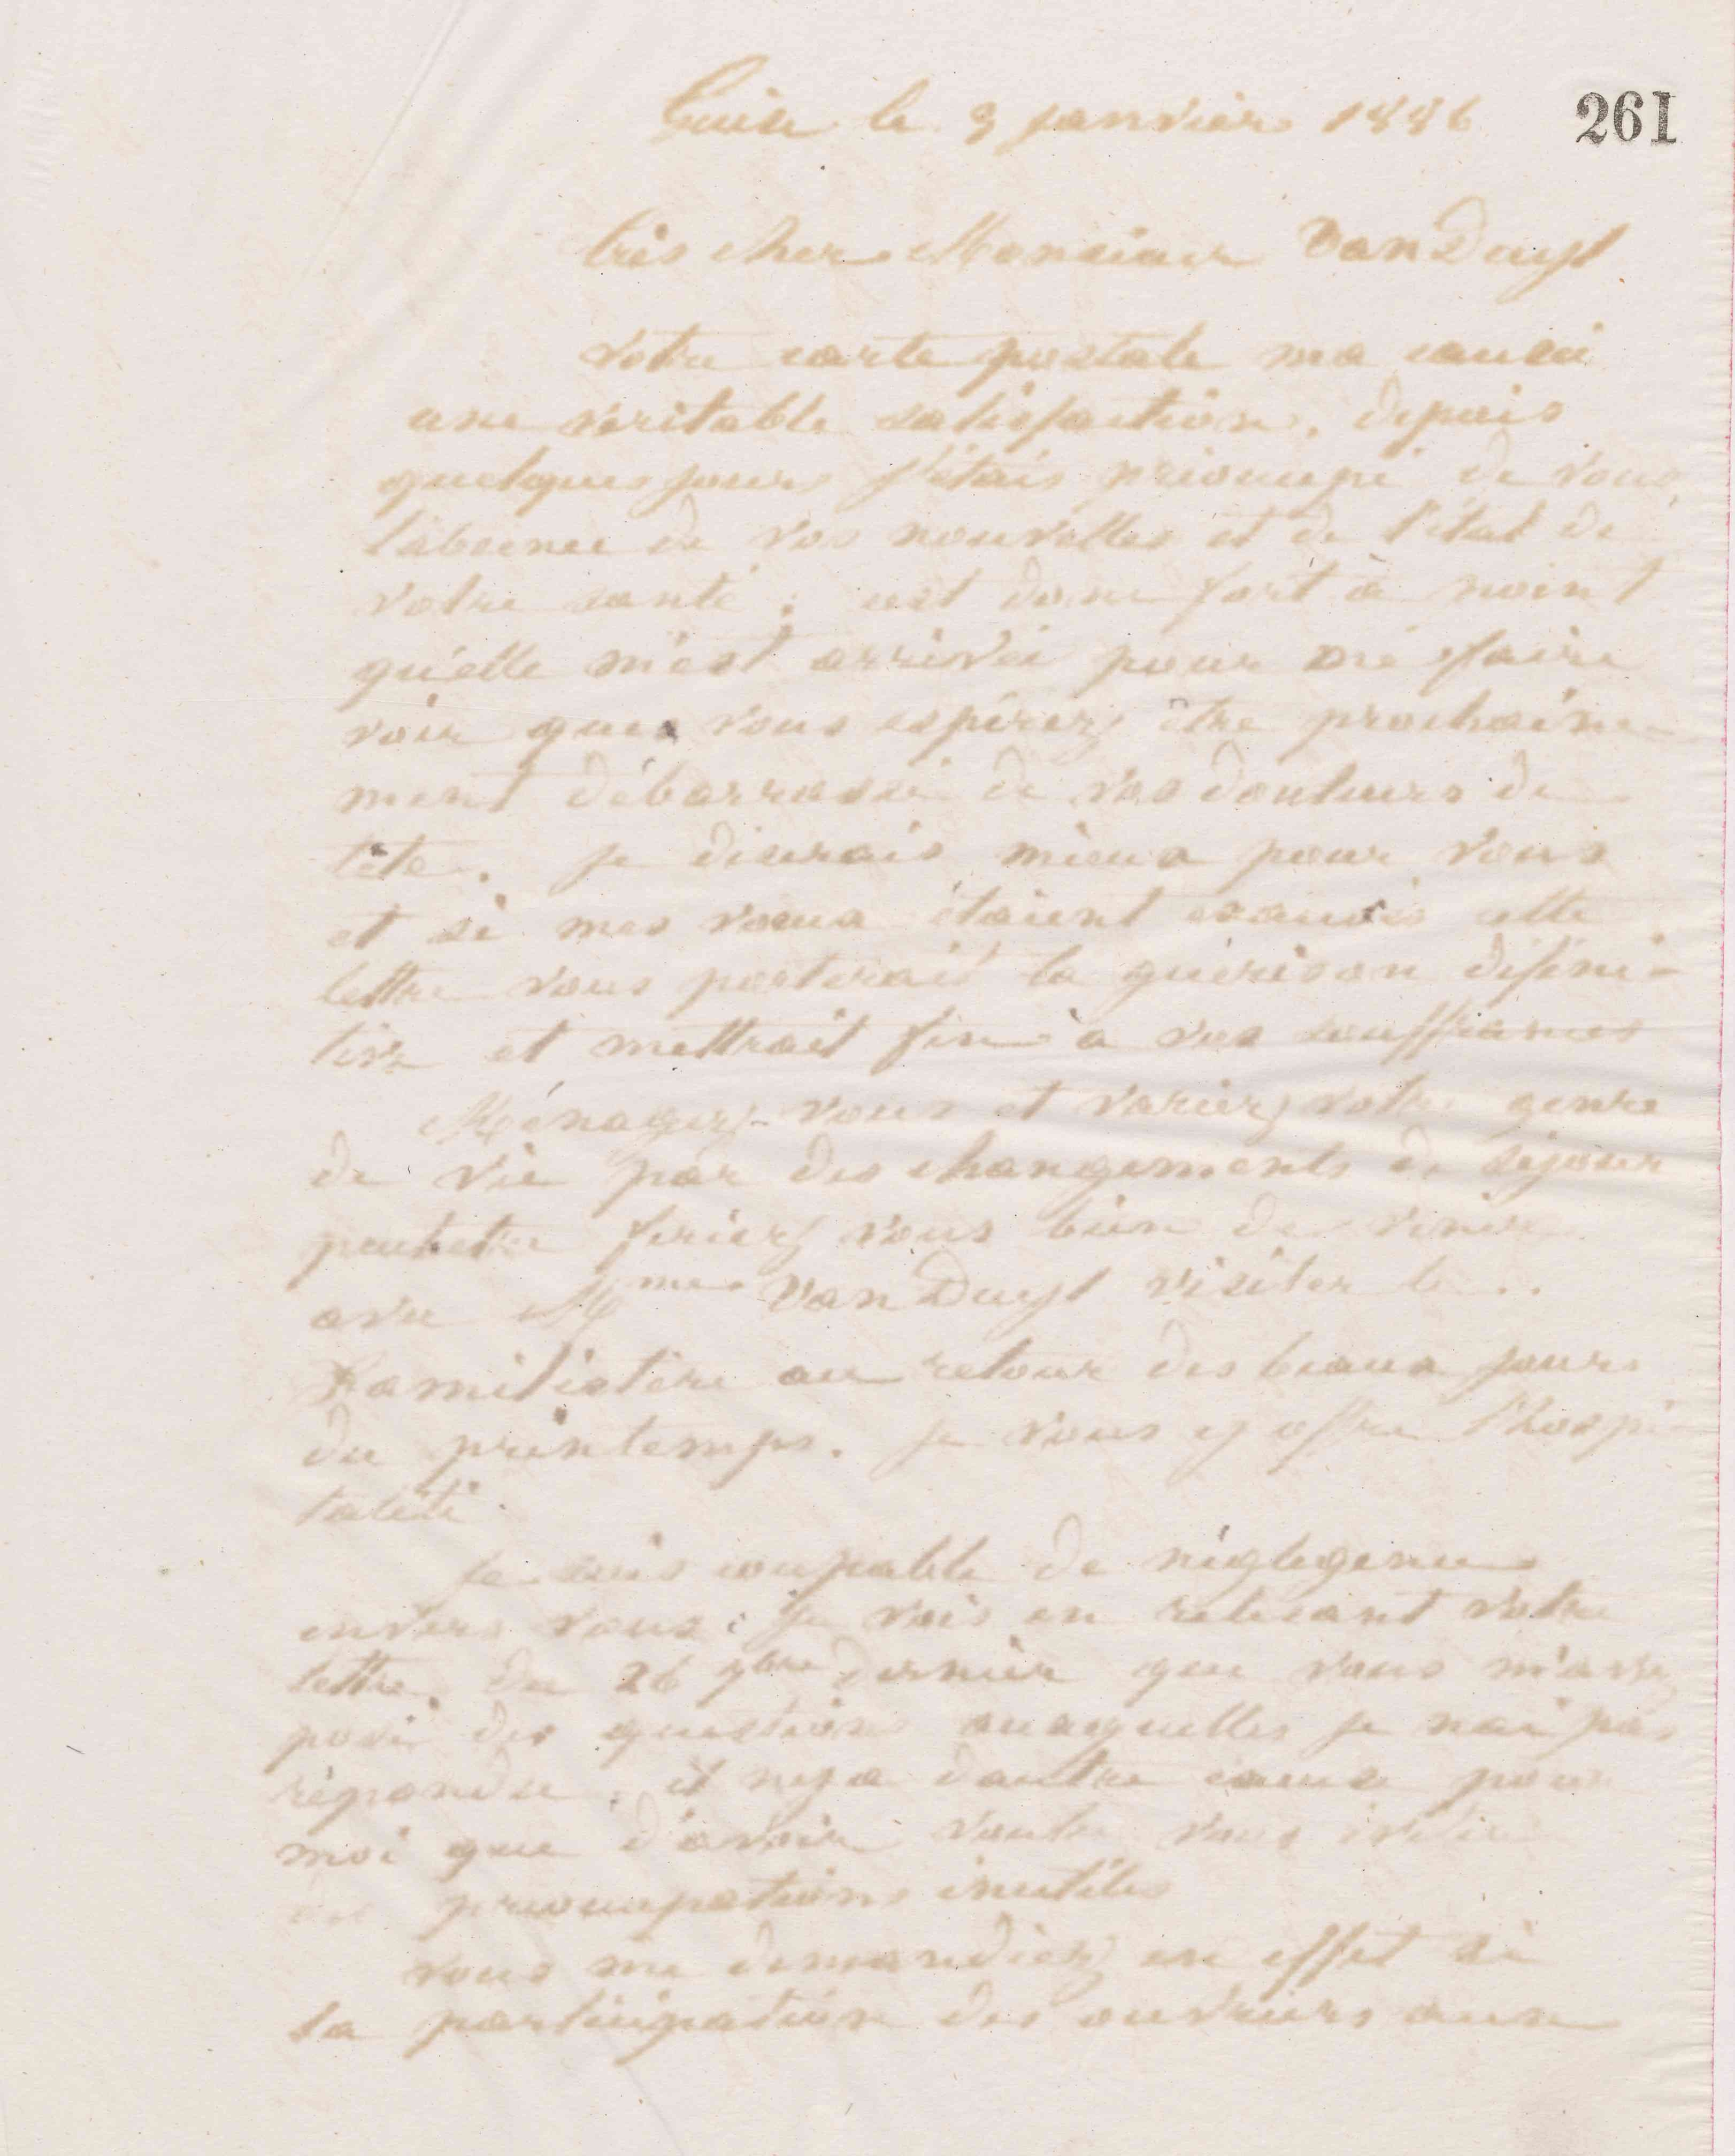 Guise le 9 janvier 1886
261
très cher Monsieur Van Duyl
Votre carte postale ma causé
une veritable satisfaction, depuis
quelques jours j'étais préoccupé de vous,
l'absence de vos nouvelles et de l'état de
votre santé ; cest donc fort à point
qu'elle m'est arrivée pour me faire
voir que vous espérez être prochaine-
ment débarrassé de vos douleurs de
tête. je désirais mieux pour vous
et si mes vœux étaient exaucés cette
lettre vous porterait la guérison défini-
tive et mettrait fin à vos souffrances
Ménagez-vous et variez votre genre
de vie par des changements de séjour
peutetre feriez vous bien de venir
avec Mme Van Duyl visiter le ..
Familistère au retour des beaux jours
du printemps. je vous y offre l'hospi-
talité.
Je suis coupable de négligence
envers vous ; je vois en relisant votre
lettre du 26 9bre dernier que vous m'avez
posé des questions auxquelles je nai pas
répondu ; il ny a dautre cause pour
moi que d'avoir voulu vous éviter
des préoccupations inutiles
vous me demandiez en effet si
la participation des ouvriers aux